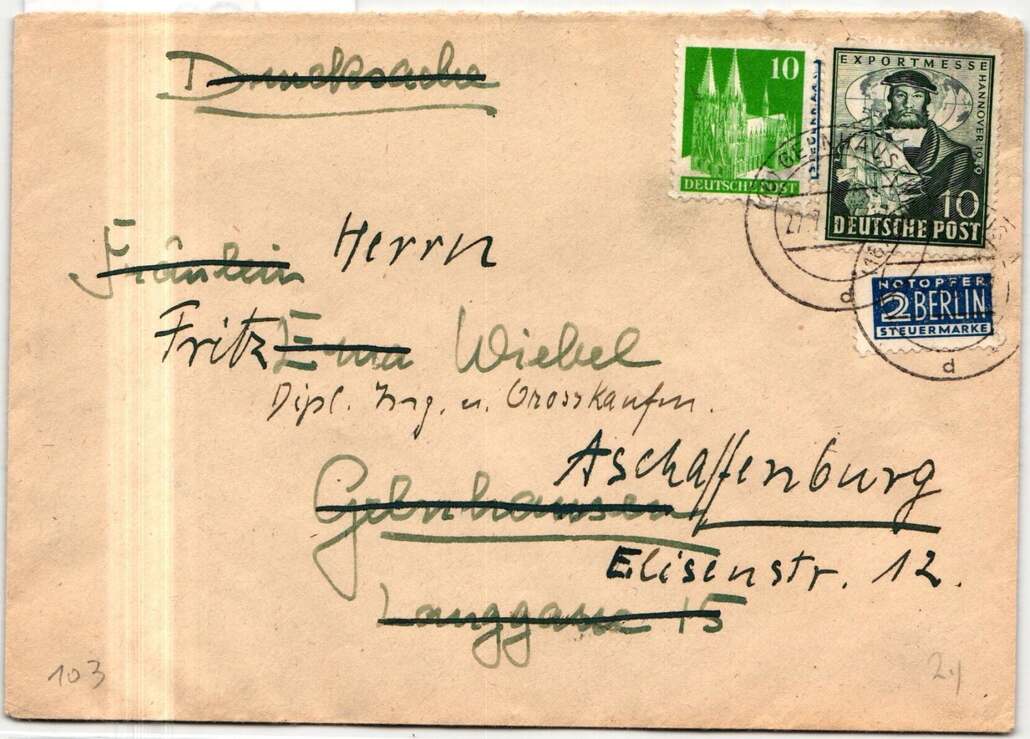 Drucksache
10
DEUTSCHE POST
EXPORTMESSE HANNOVER 1949
10
DEUTSCHE POST
GELNHAUSEN
27.7
(16)
d
NOTOPFER
2 BERLIN
STEUERMARKE
d
Fräulein Herrn
Fritz Erna Wiebel
Dipl. Ing. u. Grosskaufm.
Aschaffenburg
Gelnhausen
Elisenstr. 12.
Langgasse 15
103